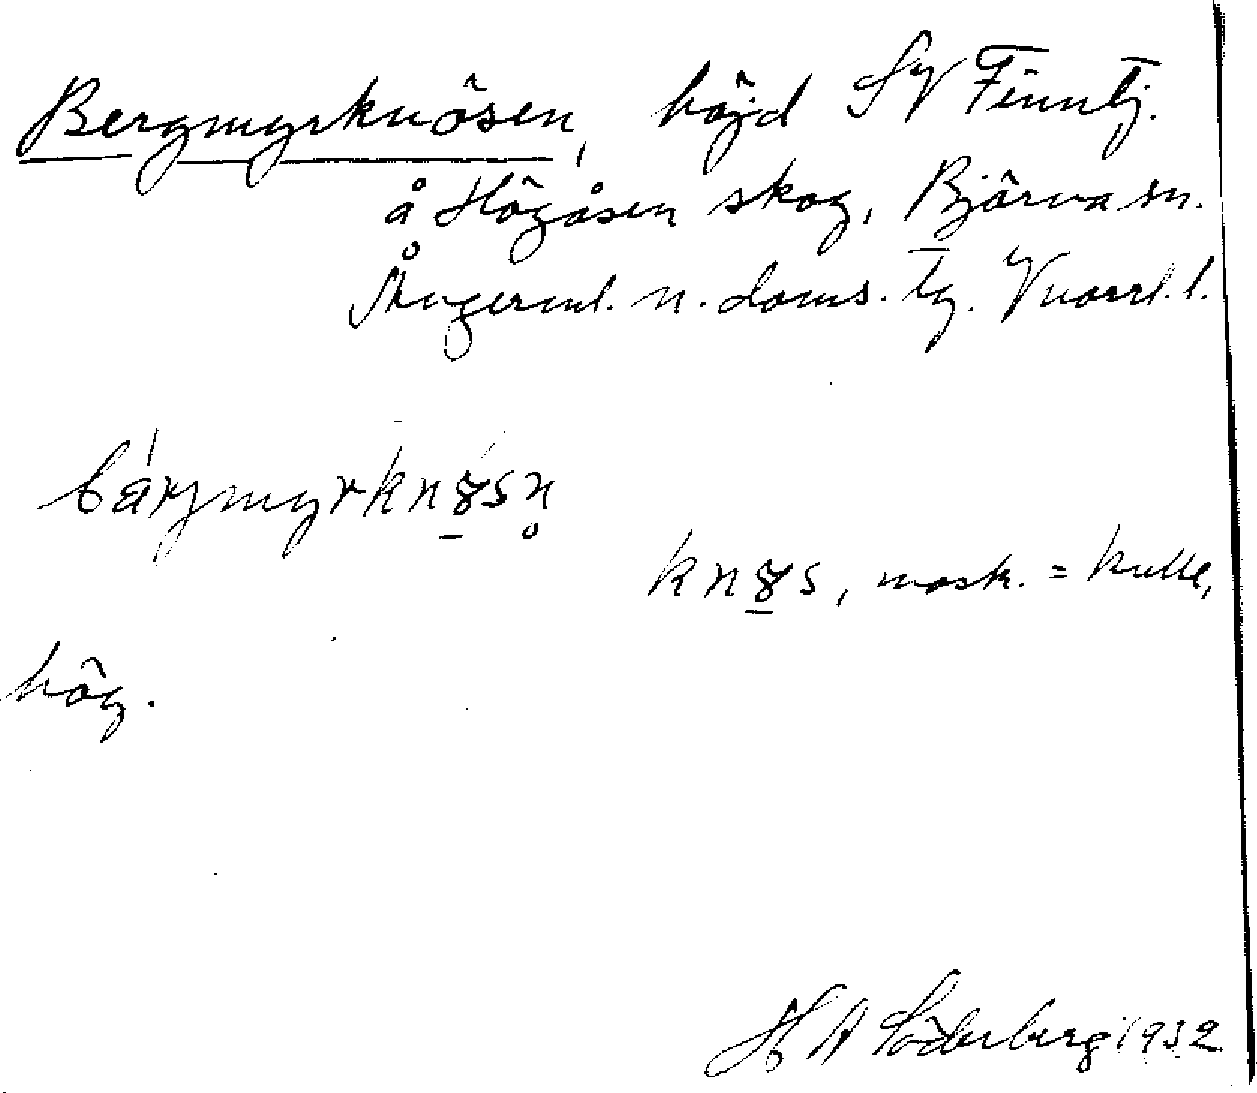 Bergmyrknösen, höjd SV Finntj.
å Högåsen skog, Björna sn.
Ångerml. n. doms. tg. Vnorrl. l.
bärgmyrknøsn̥
knøs, mask. = kulle,
hög.
H A Söderberg 1932